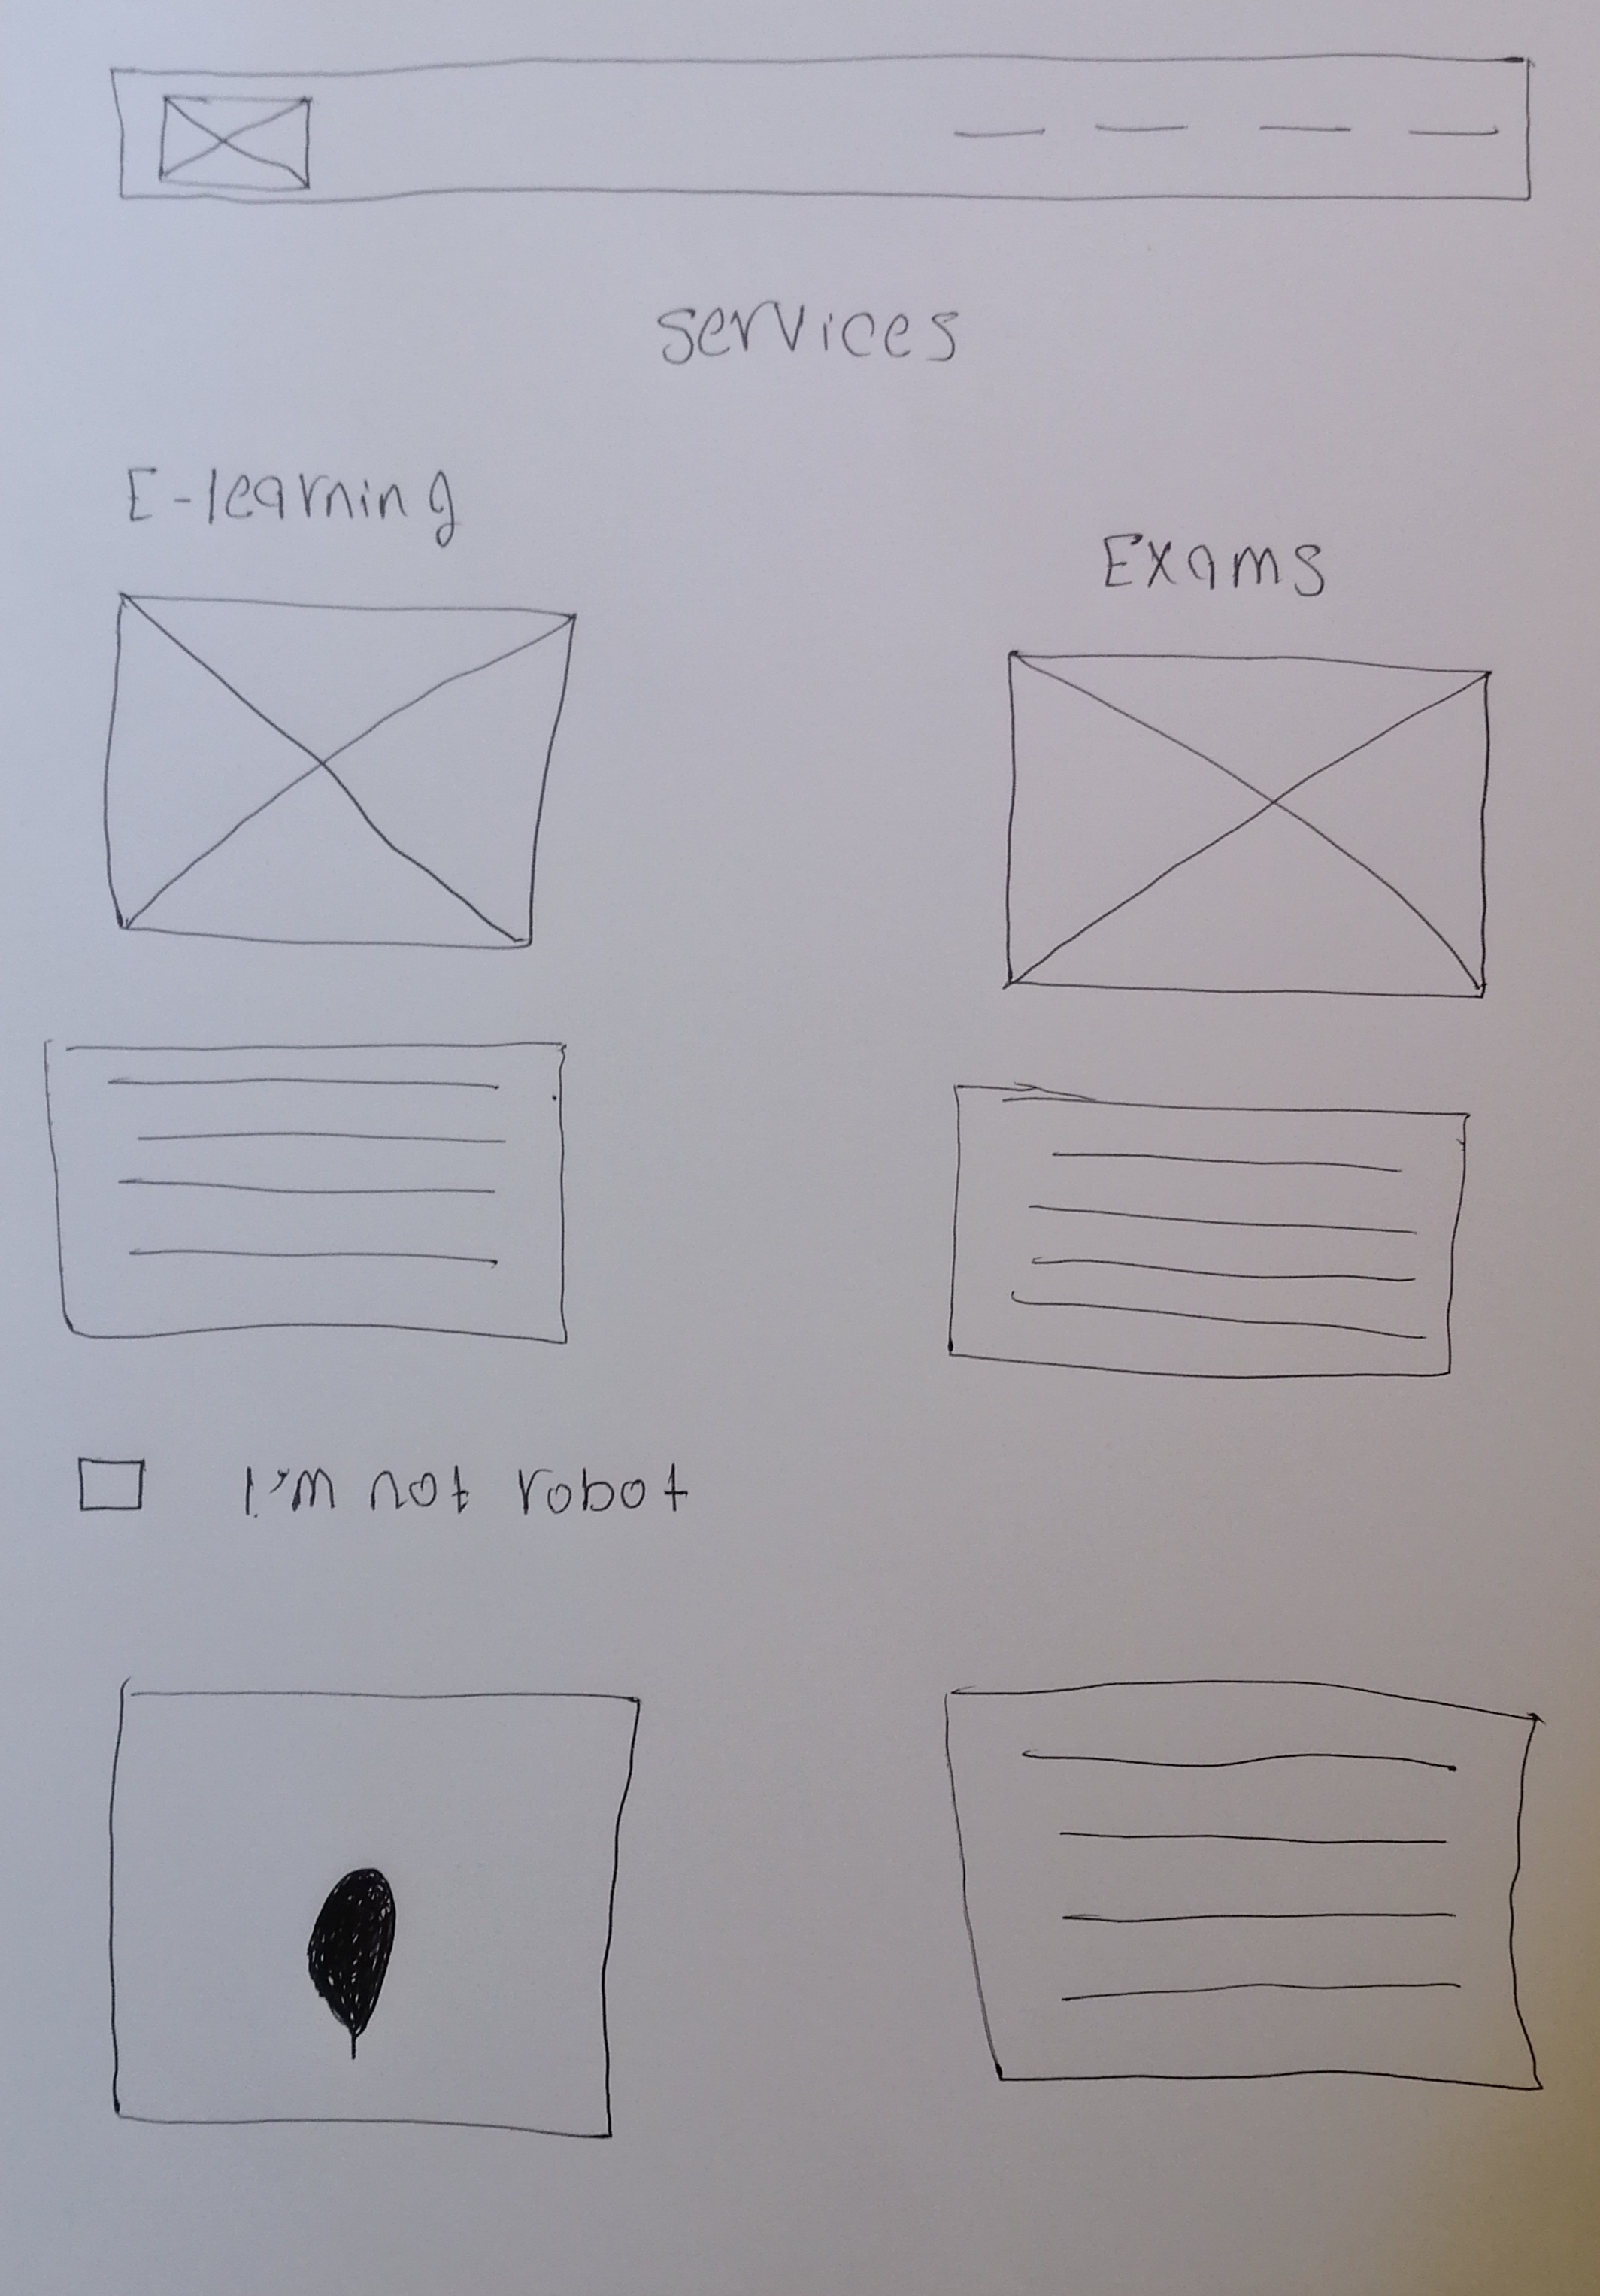 services
E-learning
Exams
I'm not robot